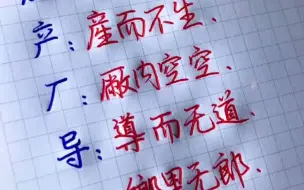 产：産而不生、
厂：厰内空空、
导：導而无道、
鄉里无郎、